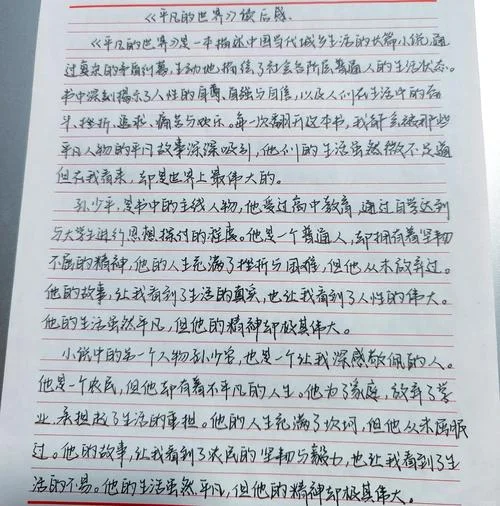 《平凡的世界》读后感.
《平凡的世界》是一本描述中国当代城乡生活的长篇小说,通
过真实的矛盾纠葛,生动地描绘了社会各阶层普通人的生活状态.
书中深刻揭示了人性的自尊、自强与自信,以及人们在生活中的奋
斗、挫折、追求、痛苦与欢乐。每一次翻开这本书,我都会被那些
平凡人物的平凡故事深深吸引,他们的生活虽然微不足道
但在我看来,却是世界上最伟大的。
孙少平,是书中的主线人物,他受过高中教育,通过自学达到
与大学生进行思想探讨的程度。他是一个普通人,却拥有着坚韧
不屈的精神,他的人生充满了挫折与困难,但他从未放弃过。
他的故事,让我看到了生活的真实,也让我看到了人性的伟大。
他的生活虽然平凡,但他的精神却极其伟大。
小说中的另一个人物孙少安,也是一个让我深感敬佩的人。
他是一个农民,但他却有着不平凡的人生。他为了家庭,放弃了学
业,承担起了生活的重担。他的人生充满了坎坷,但他从未屈服
过。他的故事,让我看到了农民的坚韧与毅力,也让我看到了生
活的不易。他的生活虽然平凡,但他的精神却极其伟大。